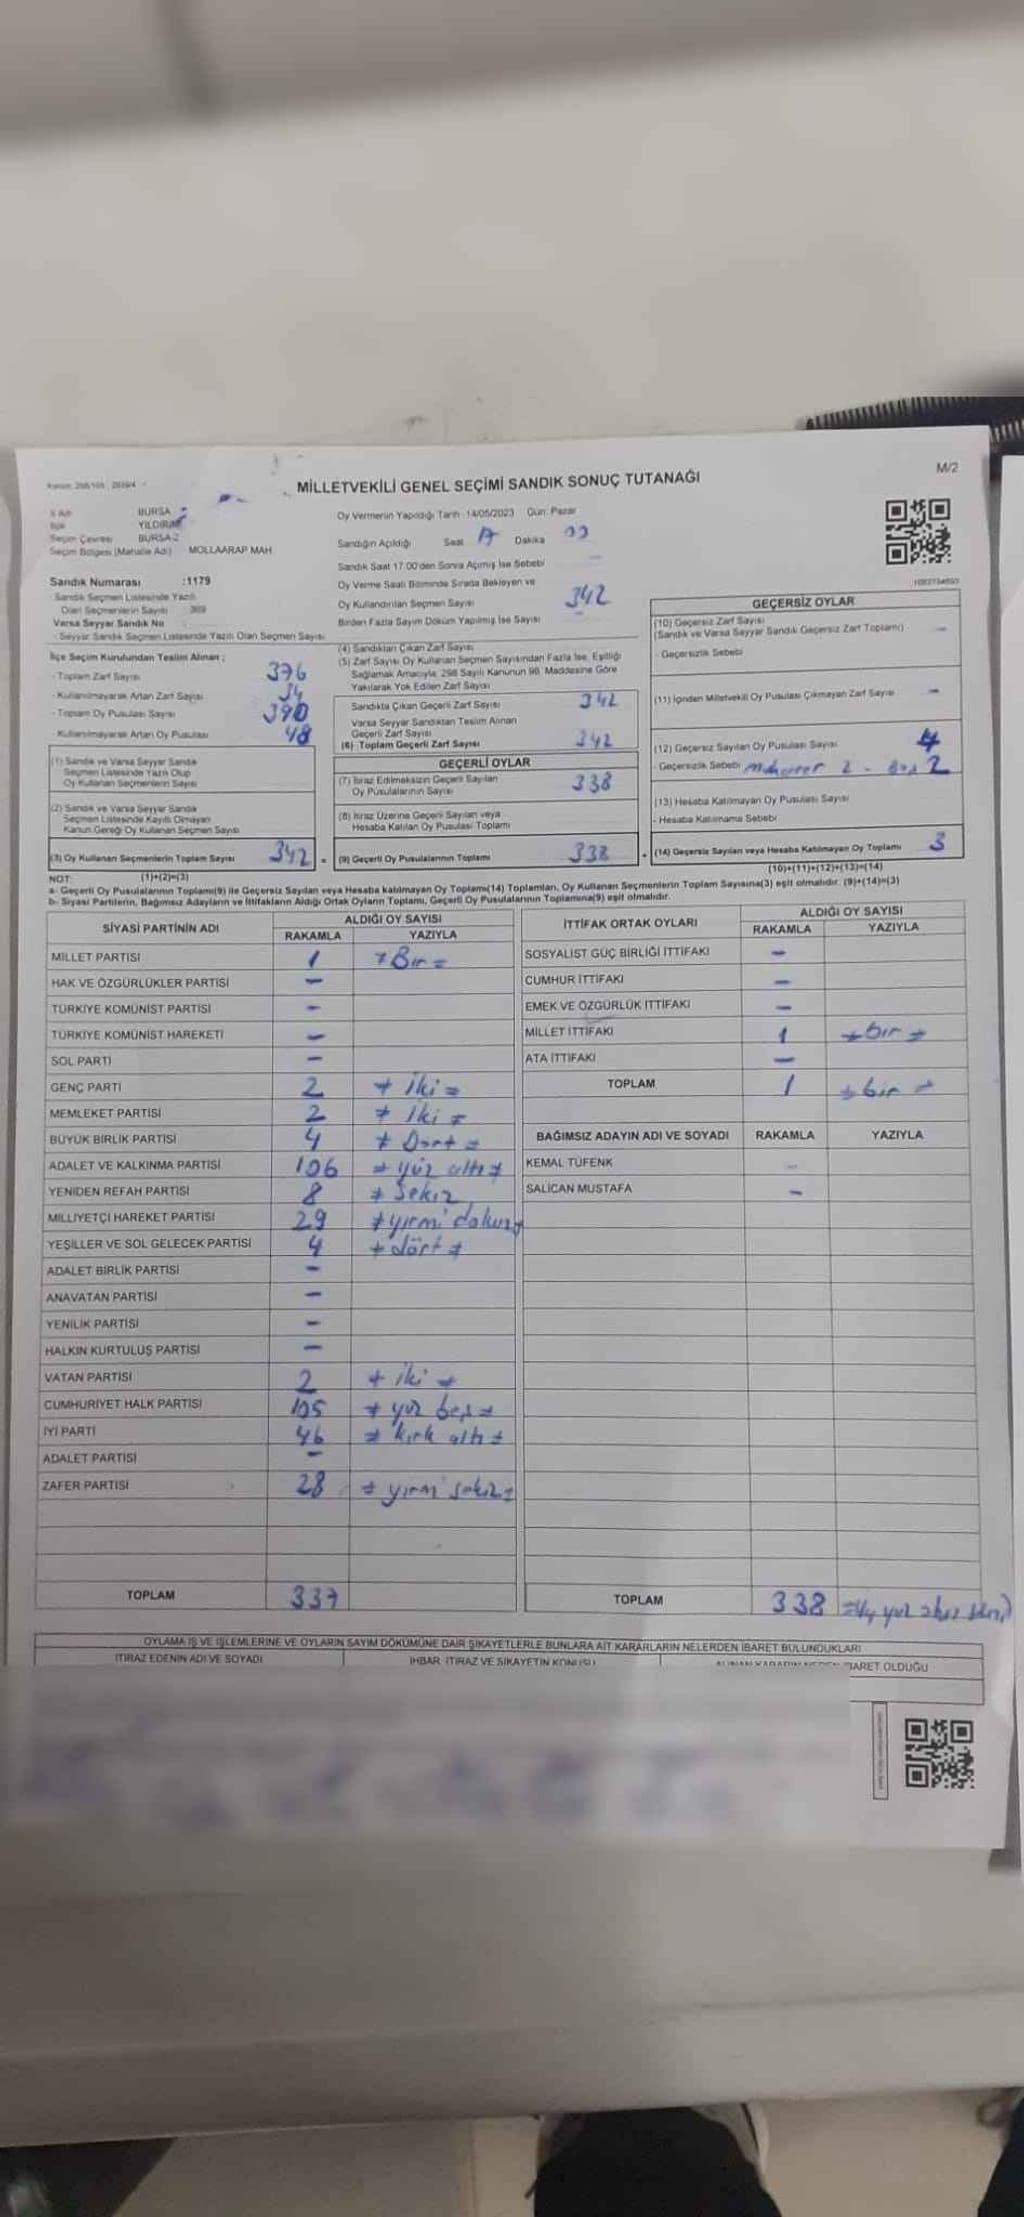 M/2
MİLLETVEKİLİ GENEL SEÇİMİ SANDIK SONUÇ TUTANAĞI
İl Adı BURSA
İlçe YILDIRIM
Seçim Çevresi BURSA-2
Seçim Bölgesi (Mahalle Adı) : MOLLAARAP MAH.
Sandık Numarası :1179
Sandık Seçmen Listesinde Yazılı
Olan Seçmenlerin Sayısı : 389
Varsa Seyyar Sandık No
- Seyyar Sandık Seçmen Listesinde Yazılı Olan Seçmen Sayısı
İlçe Seçim Kurulundan Teslim Alınan ;
- Toplam Zarf Sayısı 376
- Kullanılmayarak Artan Zarf Sayısı 34
- Toplam Oy Pusulası Sayısı 390
Kullanılmayarak Artan Oy Pusulası 48
(1) Sandık ve Varsa Seyyar Sandık
Seçmen Listesinde Yazılı Olup
Oy Kullanan Seçmenlerin Sayısı
(2) Sandık ve Varsa Seyyar Sandık
Seçmen Listesinde Kayıtlı Olmayan
Kanun Gereği Oy Kullanan Seçmen Sayısı
(3) Oy Kullanan Seçmenlerin Toplam Sayısı 342 =
Oy Vermenin Yapıldığı Tarih : 14/05/2023 Gün: Pazar
Sandığın Açıldığı Saat Dakika
Sandık Saat 17.00'den Sonra Açmış İse Sebebi
Oy Verme Saati Bitiminde Sırada Bekleyen ve
Oy Kullandırılan Seçmen Sayısı 342
Birden Fazla Sayım Döküm Yapılmış İse Sayısı
(4) Sandıktan Çıkan Zarf Sayısı
(5) Zarf Sayısı Oy Kullanan Seçmen Sayısından Fazla İse, Eşitliği
Sağlamak Amacıyla, 298 Sayılı Kanunun 98. Maddesine Göre
Yakılarak Yok Edilen Zarf Sayısı
Sandıkta Çıkan Geçerli Zarf Sayısı 342
Varsa Seyyar Sandıktan Teslim Alınan
Geçerli Zarf Sayısı
(6) Toplam Geçerli Zarf Sayısı 342
GEÇERLİ OYLAR
(7) İtiraz Edilmeksizin Geçerli Sayılan
Oy Pusulalarının Sayısı 338
(8) İtiraz Üzerine Geçerli Sayılan veya
Hesaba Katılan Oy Pusulası Toplamı
(9) Geçerli Oy Pusulalarının Toplamı 338 +
GEÇERSİZ OYLAR
(10) Geçersiz Zarf Sayısı
(Sandık ve Varsa Seyyar Sandık Geçersiz Zarf Toplamı) -
- Geçersizlik Sebebi
(11) İçinden Milletvekili Oy Pusulası Çıkmayan Zarf Sayısı -
(12) Geçersiz Sayılan Oy Pusulası Sayısı 4
- Geçersizlik Sebebi 2 - Boş 2
(13) Hesaba Katılmayan Oy Pusulası Sayısı
- Hesaba Katılmama Sebebi
(14) Geçersiz Sayılan veya Hesaba Katılmayan Oy Toplamı 3
NOT: (1)+(2)=(3) (10)+(11)+(12)+(13)=(14)
a- Geçerli Oy Pusulalarının Toplamı(9) ile Geçersiz Sayılan veya Hesaba katılmayan Oy Toplamı(14) Toplamları, Oy Kullanan Seçmenlerin Toplam Sayısına(3) eşit olmalıdır. (9)+(14)=(3)
b- Siyasi Partilerin, Bağımsız Adayların ve İttifakların Aldığı Ortak Oyların Toplamı, Geçerli Oy Pusulalarının Toplamına(9) eşit olmalıdır.
SİYASİ PARTİNİN ADI ALDIĞI OY SAYISI
RAKAMLA YAZIYLA
MİLLET PARTİSİ 1 Bir
HAK VE ÖZGÜRLÜKLER PARTİSİ -
TÜRKİYE KOMÜNİST PARTİSİ -
TÜRKİYE KOMÜNİST HAREKETİ -
SOL PARTİ -
GENÇ PARTİ 2 iki
MEMLEKET PARTİSİ 2 iki
BÜYÜK BİRLİK PARTİSİ 4 Dört
ADALET VE KALKINMA PARTİSİ 106 yüz altı
YENİDEN REFAH PARTİSİ 8 Sekiz
MİLLİYETÇİ HAREKET PARTİSİ 29 yirmi dokuz
YEŞİLLER VE SOL GELECEK PARTİSİ 4 dört
ADALET BİRLİK PARTİSİ -
ANAVATAN PARTİSİ -
YENİLİK PARTİSİ -
HALKIN KURTULUŞ PARTİSİ -
VATAN PARTİSİ 2 iki
CUMHURİYET HALK PARTİSİ 105 yüz beş
İYİ PARTİ 46 kırk altı
ADALET PARTİSİ -
ZAFER PARTİSİ 28 yirmi sekiz
TOPLAM 337
İTTİFAK ORTAK OYLARI ALDIĞI OY SAYISI
RAKAMLA YAZIYLA
SOSYALİST GÜÇ BİRLİĞİ İTTİFAKI -
CUMHUR İTTİFAKI -
EMEK VE ÖZGÜRLÜK İTTİFAKI -
MİLLET İTTİFAKI 1 bir
ATA İTTİFAKI -
TOPLAM 1 bir
BAĞIMSIZ ADAYIN ADI VE SOYADI RAKAMLA YAZIYLA
KEMAL TÜFENK -
SALİCAN MUSTAFA -
TOPLAM 338
OYLAMA İŞ VE İŞLEMLERİNE VE OYLARIN SAYIM DÖKÜMÜNE DAİR ŞİKAYETLERLE BUNLARA AİT KARARLARIN NELERDEN İBARET BULUNDUKLARI
İTİRAZ EDENİN ADI VE SOYADI İHBAR, İTİRAZ VE ŞİKAYETİN KONUSU ALINAN KARARIN NEDEN İBARET OLDUĞU